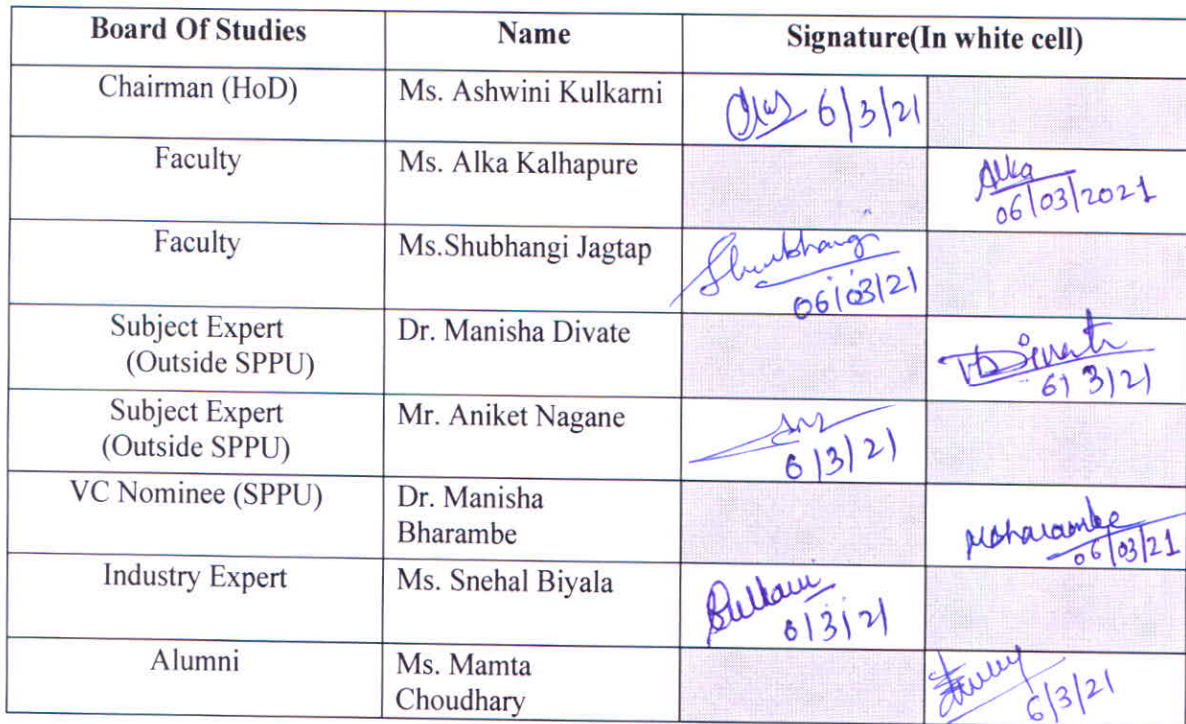 Board Of Studies Name Signature(In white cell)
Chairman (HoD) Ms. Ashwini Kulkarni 6/3/21
Faculty Ms. Alka Kalhapure Alka
06/03/2021
Faculty Ms.Shubhangi Jagtap Shubhangi
06/03/21
Subject Expert Dr. Manisha Divate
(Outside SPPU) 6/3/21
Subject Expert Mr. Aniket Nagane
(Outside SPPU) 6/3/21
VC Nominee (SPPU) Dr. Manisha
Bharambe 06/03/21
Industry Expert Ms. Snehal Biyala
6/3/21
Alumni Ms. Mamta
Choudhary 6/3/21